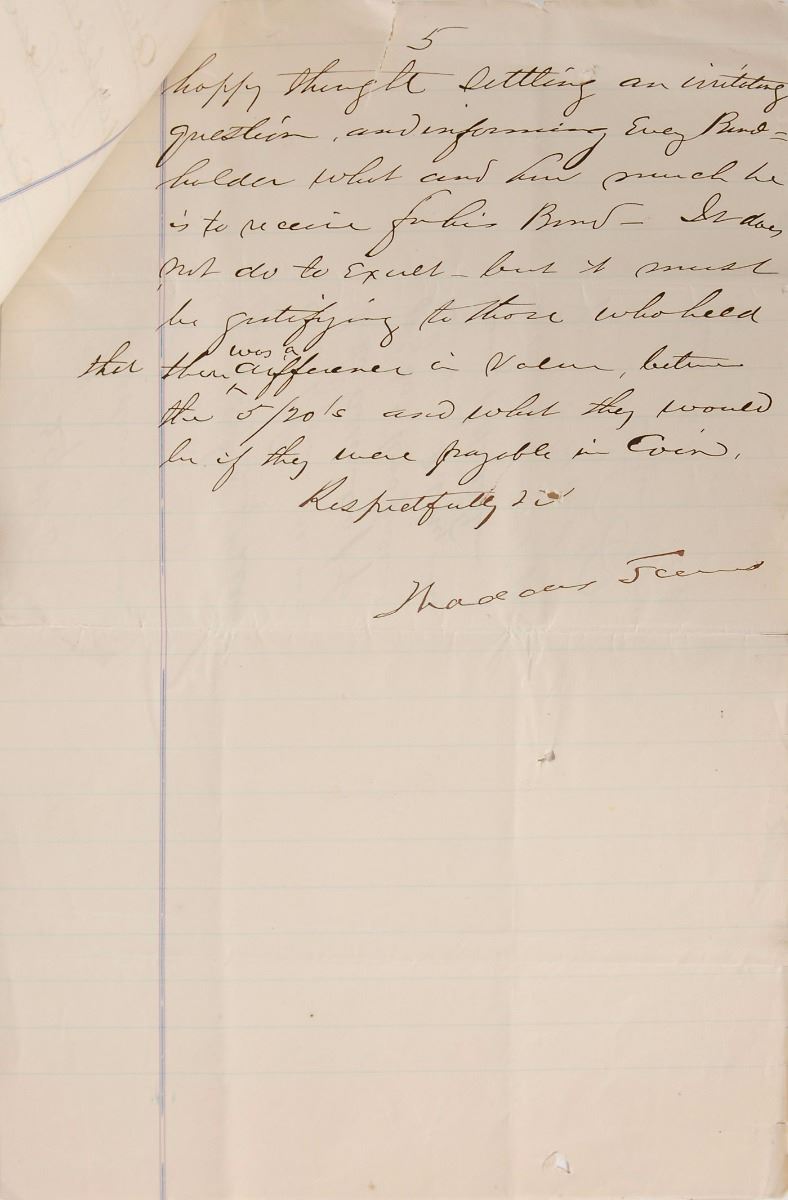 5
happy thought settling an irritating
question, and informing Every Bond=
holder what and how much he
is to receive for his Bond – It does
not do to Exult – but it must
be gratifying to those who held
that there was a difference in Value, between
the 5/20's and what they would
be if they were payable in Coin.
Respectfully
Thaddeus Stevens